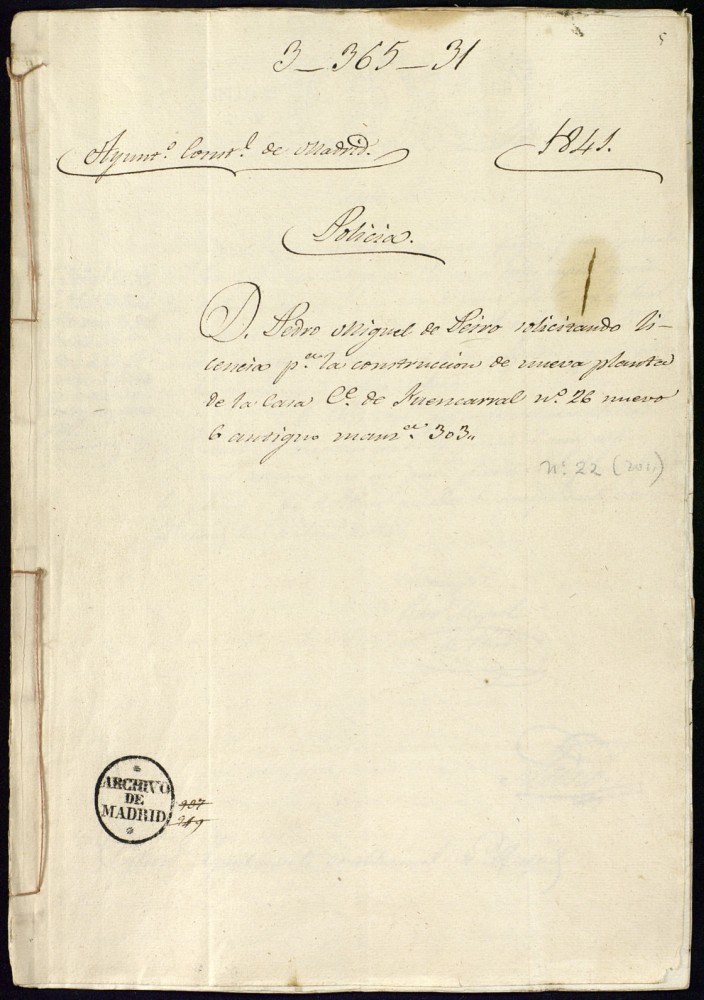 3_365_31
Ayunt.º Const.l de Madrid.
1841.
Policia.
D. Pedro Miguel de Peiro solicitando li-
cencia p.ª la construccion de nueva planta
de la Casa C.e de Fuencarral n.º 26 nuevo
6 antiguo manz.ª 303„
Nº 22 (2011)
ARCHIVO
DE
MADRID